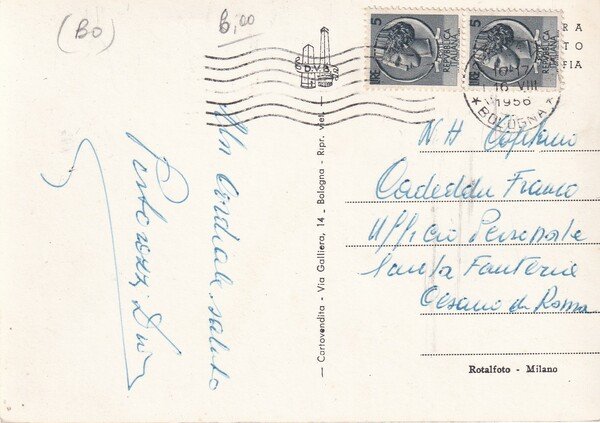 (BO)
6,00
5
LIRE
REPUBBLICA
ITALIANA
5
LIRE
REPUBBLICA
ITALIANA
RA
TO
FIA
16 VIII
1956
* BOLOGNA *
Un cordiale saluto
— Cartovendita - Via Galliera, 14 - Bologna - Ripr. viet.
NH Capitano
Cadeddu Franco
Ufficio
Scuola Fanteria
Cesano di Roma
Rotalfoto - Milano